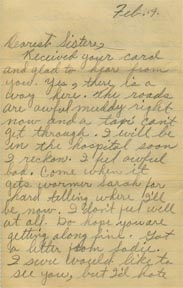 Feb. 9.
Dearest Sister,
Received your card
and glad to hear from
you. Yes, there is a
way here. The roads
are awful muddy right
now and a taxi can't
get through. I will be
in the hospital soon
I reckon. I feel awful
bad. Come when it
gets warmer Sarah for
hard telling where I'll
be now. I don't feel well
at all. Do hope you are
getting along fine. Got
a letter from Sadie.
I sure would like to
see you, but I'd hate